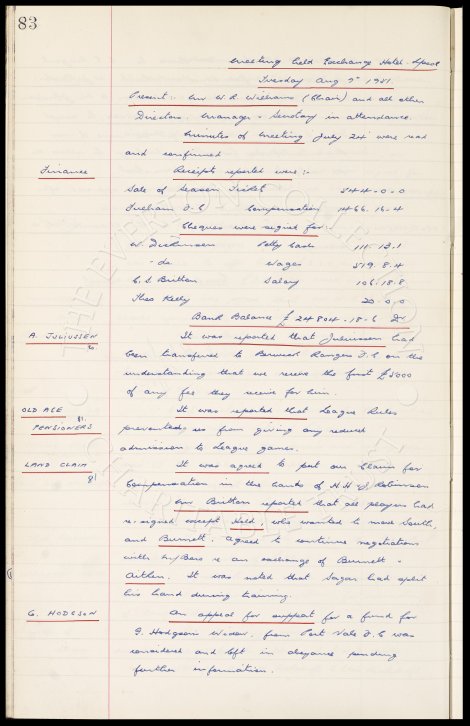 83
Meeting held Exchange Hotel. L'pool
Tuesday Aug 7th 1951.
Present:- Mr W. R. Williams (Chair) and all other
Directors. Manager - Secretary in attendance.
Minutes of Meeting July 24th were read
and confirmed
Finance
Receipts reported were:-
Sale of Season Ticket 544-0-0
Fulham F.C Compensation 1466.16-4
Cheques were signed for
W. Dickinson Petty Cash 111.13.1
- do Wages 519.8.4
C. S. Britton Salary 106.18.8
Theo Kelly 20-0-0
Bank Balance £ 24804-18-6 Dr
A. JULIUSSEN
It was reported that Juliussen had
been transferred to Berwick Rangers F.C on the
understanding that we receive the first £5000
of any fee they receive for him.
OLD AGE
PENSIONERS
81.
It was reported that League Rules
prevented us from giving any reduced
admission to League games.
LAND CLAIM
81
It was agreed to put our Claim for
Compensation in the hands of H. H. J. Robinson
Mr Britton reported that all players had
re-signed except Held, who wanted to move South,
and Burnett. Agreed to continue negotiations
with M/Boro re an exchange of Burnett -
Aitken. It was noted that Sagar had split
his hand during training.
G. HODGSON
An appeal for support for a fund for
G. Hodgsons Widow, from Port Vale F.C was
considered and left in abeyance pending
further information.
THE EVERTON COLLECTION
CHARITABLE TRUST